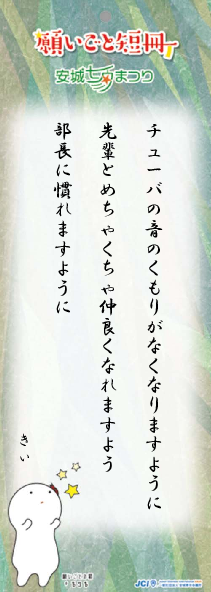 願いごと短冊
安城七夕まつり
チューバの音のくもりがなくなりますように
先輩とめちゃくちゃ仲良くなれますよう
部長に慣れますように
きい
JCI